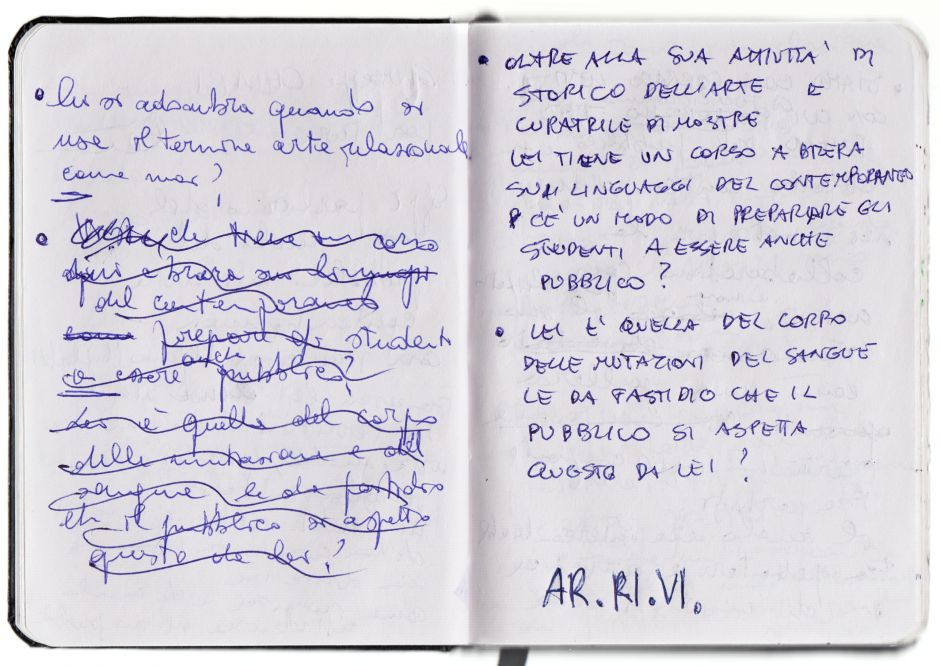 • lei si adombra quando si
usa il termine arte relazionale
come mai?
• che tiene un corso
a brera sui linguaggi
del contemporaneo
come prepara gli studenti
a essere anche pubblico?
Lei è quella del corpo
delle mutazioni e del
sangue le da fastidio
che il pubblico si aspetta
questo da lei?
• OLTRE ALLA SUA ATTIVITA' DI
STORICO DELL'ARTE E
CURATRILE DI MOSTRE
LEI TIENE UN CORSO A BRERA
SUI LINGUAGGI DEL CONTEMPORANEO
C'E' UN MODO DI PREPARARE GLI
STUDENTI A ESSERE ANCHE
PUBBLICO?
• LEI E' QUELLA DEL CORPO
DELLE MUTAZIONI DEL SANGUE
LE DA FASTIDIO CHE IL
PUBBLICO SI ASPETTA
QUESTO DA LEI?
AR.RI.VI.